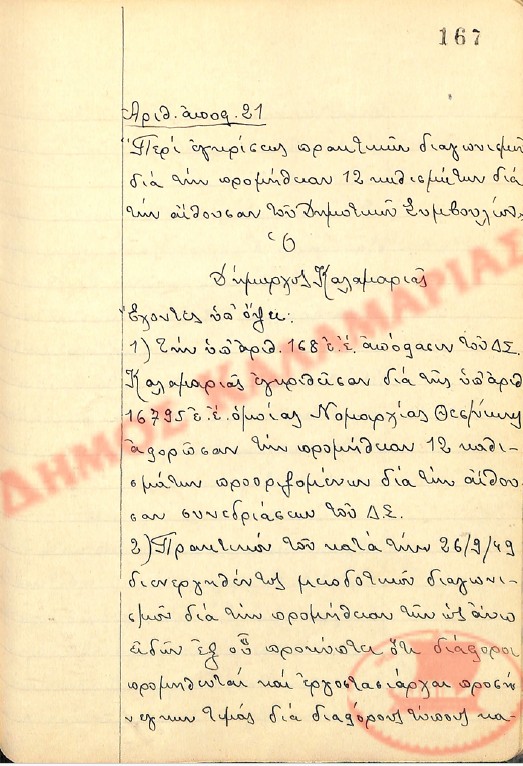 167
Ἀριθ. ἀποφ. 21
"Περί ἐγκρίσεως πρακτικοῦ διαγωνισμοῦ
διά τήν προμήθειαν 12 καθισμάτων διά
τήν αἴθουσαν τοῦ Δημοτικοῦ Συμβουλίου"
Ὁ
Δήμαρχος Καλαμαριᾶς
Ἔχοντες ὑπ' ὄψει:
1) Τήν ὑπ' ἀριθ. 168 ἐ.ἔ. ἀπόφασιν τοῦ ΔΣ.
Καλαμαριᾶς ἐγκριθεῖσαν διά τῆς ὑπ' ἀριθ
16795 ἐ.ἔ. ὁμοίας Νομαρχίας Θεσ/νίκης
ἀφορῶσαν τήν προμήθειαν 12 καθι-
σμάτων προοριζομένων διά τήν αἴθου-
σαν συνεδριάσεων τοῦ Δ.Σ.
2) Πρακτικόν τοῦ κατά τήν 26/9/49
διενεργηθέντος μειοδοτικοῦ διαγωνι-
σμοῦ διά τήν προμήθειαν τῶν ὡς ἄνω
εἰδῶν ἐξ οὗ προκύπτει ὅτι διάφοροι
προμηθευταί καί ἐργοστασιάρχαι προσή-
νεγκον τιμάς διά διαφόρους τύπους κα-
ΔΗΜΟΣ ΚΑΛΑΜΑΡΙΑΣ